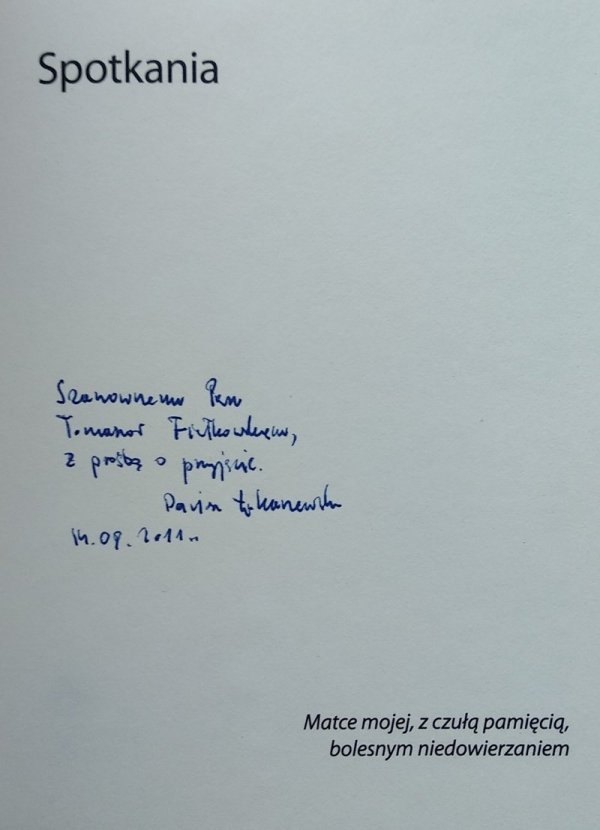 Spotkania
Szanownemu Panu
Tomaszowi
z prośbą o przyjęcie.
14.09.2011 r.
Matce mojej, z czułą pamięcią,
bolesnym niedowierzaniem